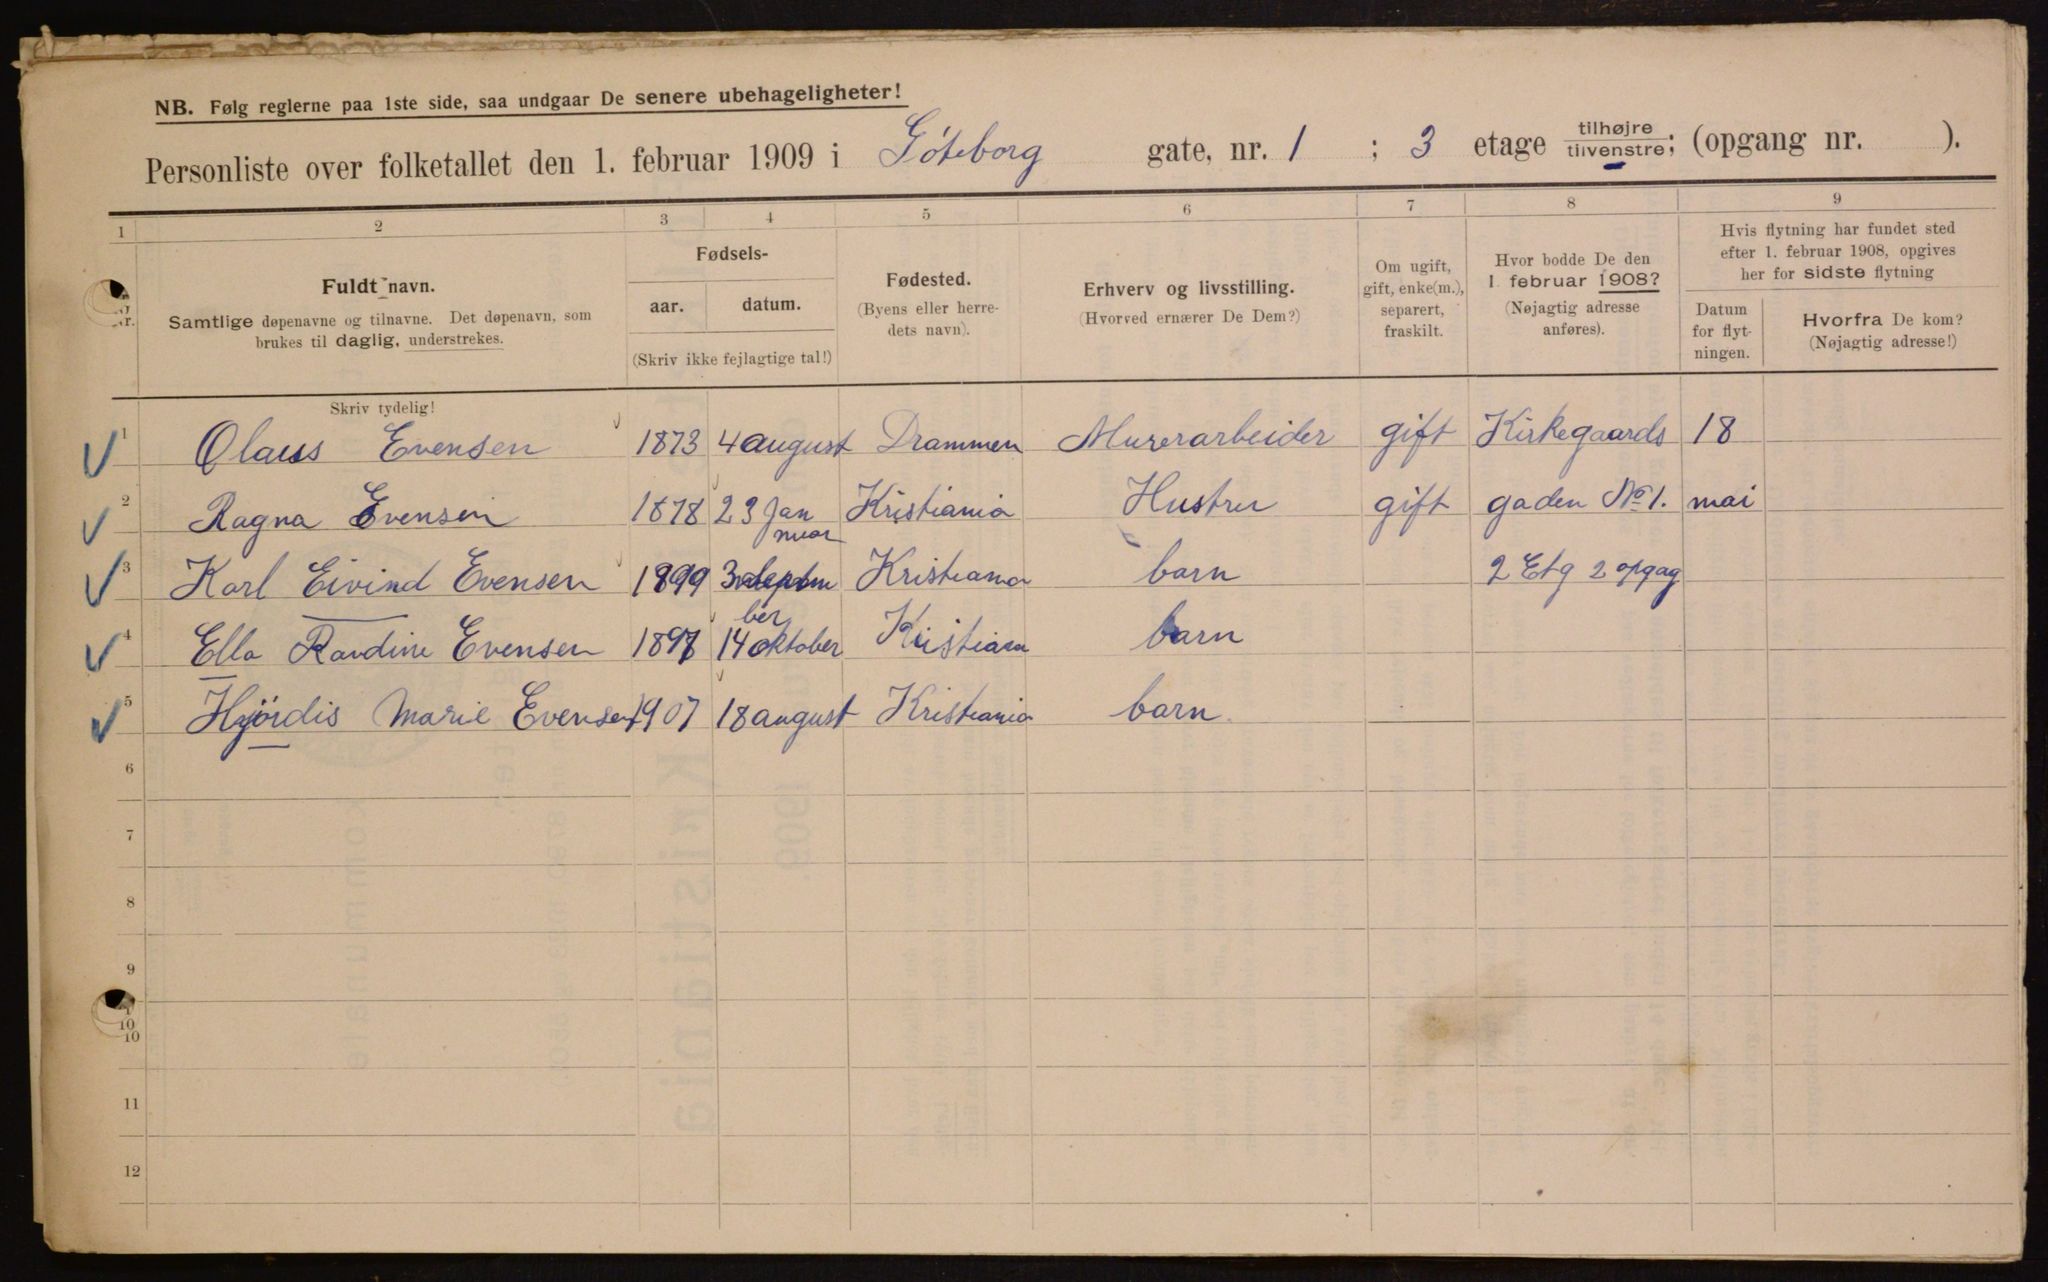 NB. Følg reglerne paa 1ste side, saa undgaar De senere ubehageligheter!
Personliste over folketallet den 1. februar 1909 i Göteborg gate, nr. 1 ; 3 etage tilhøjre tilvenstre; (opgang nr. ).
1 2 3 4 5 6 7 8 9
Fuldt navn.
Samtlige døpenavne og tilnavne. Det døpenavn, som
brukes til daglig, understrekes.
Skriv tydelig!
Fødsels-
aar. datum.
(Skriv ikke fejlagtige tal!)
Fødested.
(Byens eller herre-
dets navn).
Erhverv og livsstilling.
(Hvorved ernærer De Dem?)
Om ugift,
gift, enke(m.),
separert,
fraskilt.
Hvor bodde De den
1 februar 1908?
(Nøjagtig adresse
anføres).
Hvis flytning har fundet sted
efter 1. februar 1908, opgives
her for sidste flytning
Datum
for flyt-
ningen.
Hvorfra De kom?
(Nøjagtig adresse!)
1 Olaus Evensen 1873 4 august Drammen Murerarbeider gift Kirkegaards 18
2 Ragna Evensen 1878 23 Jan Kristiania Hustru gift gaden No 1. mai
nuar
3 Karl Eivind Evensen 1899 3 septem Kristiania barn 2 Etg 2 opgag
ber
4 Ella Randine Evensen 1897 14 oktober Kristiana barn
5 Hjördis Marie Evensen 1907 18 august Kristiania barn.
6
7
8
9
10
10
11
12